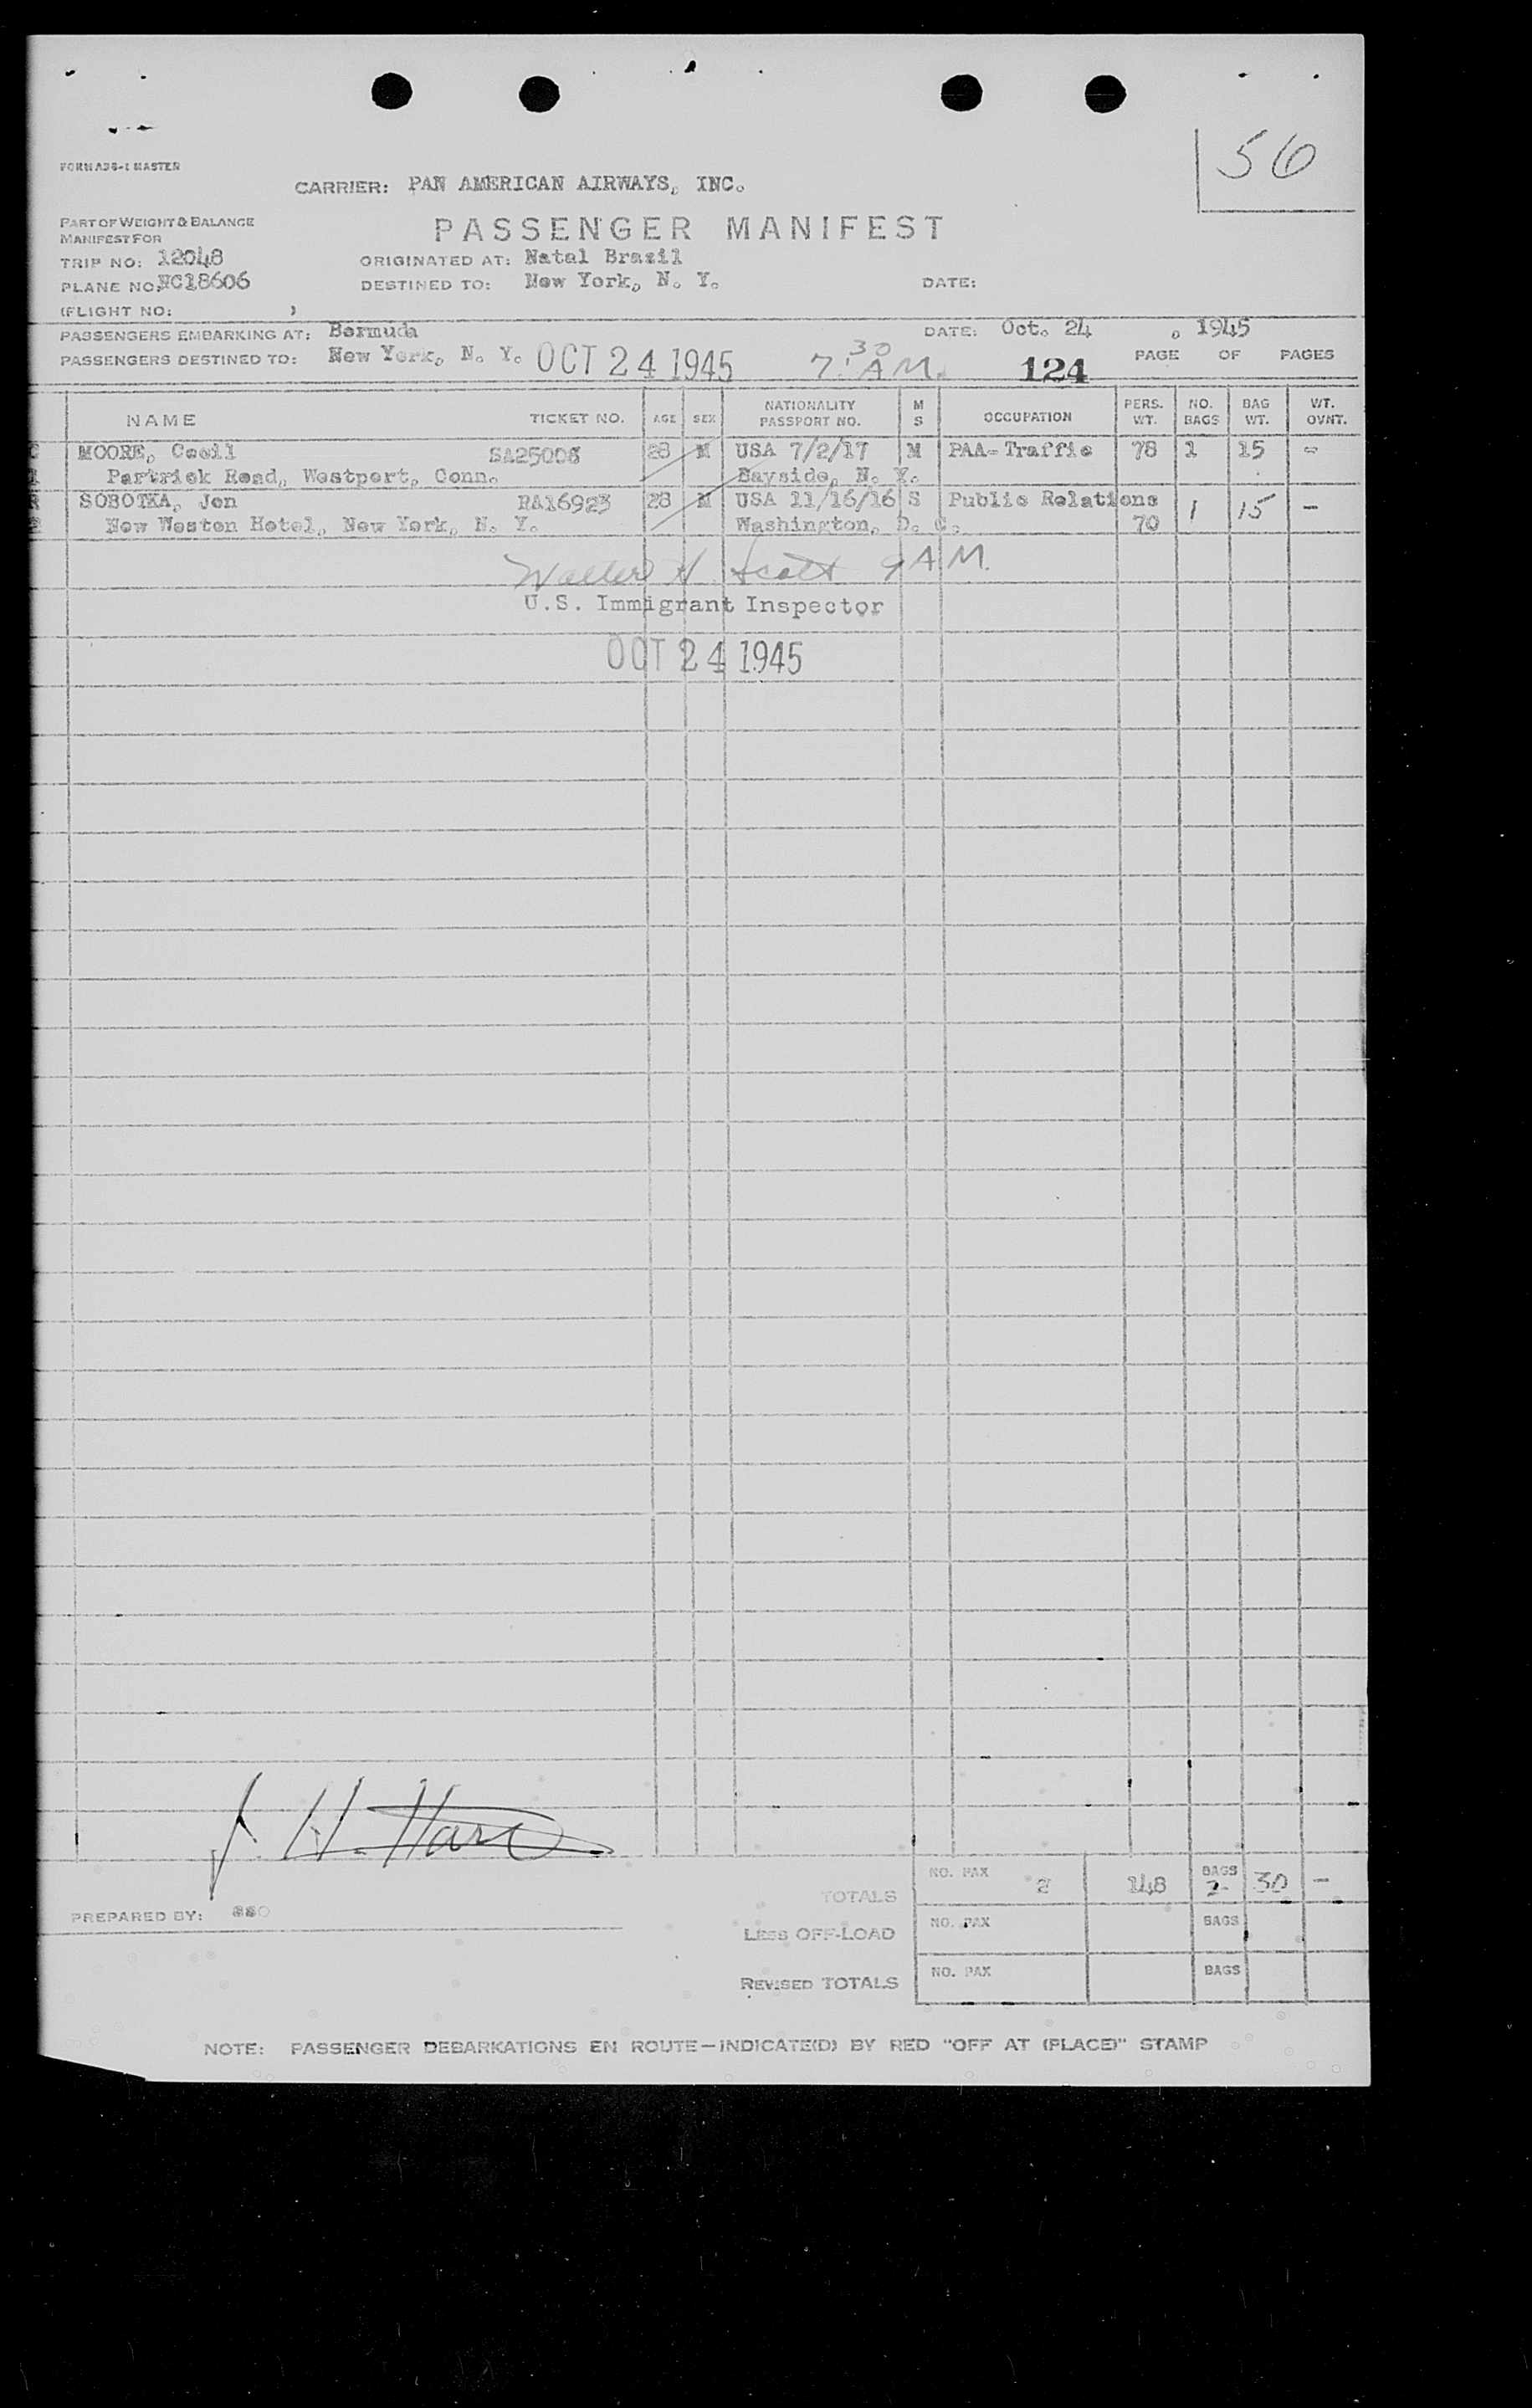 56
FORM A36-1 MASTER
CARRIER: PAN AMERICAN AIRWAYS, INC.
PART OF WEIGHT & BALANCE
MANIFEST FOR
PASSENGER MANIFEST
TRIP NO: 12048 ORIGINATED AT: Natal Brazil
PLANE NO. NC18606 DESTINED TO: New York, N. Y. DATE:
(FLIGHT NO: )
PASSENGERS EMBARKING AT: Bermuda DATE: Oct. 24, 1945
PASSENGERS DESTINED TO: New York, N. Y. OCT 24 1945 7:30 A M. 124 PAGE OF PAGES
NAME TICKET NO. AGE SEX NATIONALITY PASSPORT NO. M S OCCUPATION PERS. WT. NO. BAGS BAG WT. WT. OVHT.
MOORE, Cecil SA25008 28 M USA 7/2/17 M PAA-Traffic 78 1 15 -
Partrick Road, Westport, Conn. Bayside, N. Y.
SOBOTKA, Jon RA16923 28 M USA 11/16/16 S Public Relations 1 15 -
New Weston Hotel, New York, N. Y. Washington, D. C. 70
Walter H. Scott 9 A M.
U.S. Immigrant Inspector
OCT 24 1945
J. H.
TOTALS NO. PAX 2 148 BAGS 2 30 -
PREPARED BY:
LESS OFF-LOAD NO. PAX BAGS
REVISED TOTALS NO. PAX BAGS
NOTE: PASSENGER DEBARKATIONS EN ROUTE—INDICATE(D) BY RED "OFF AT (PLACE)" STAMP